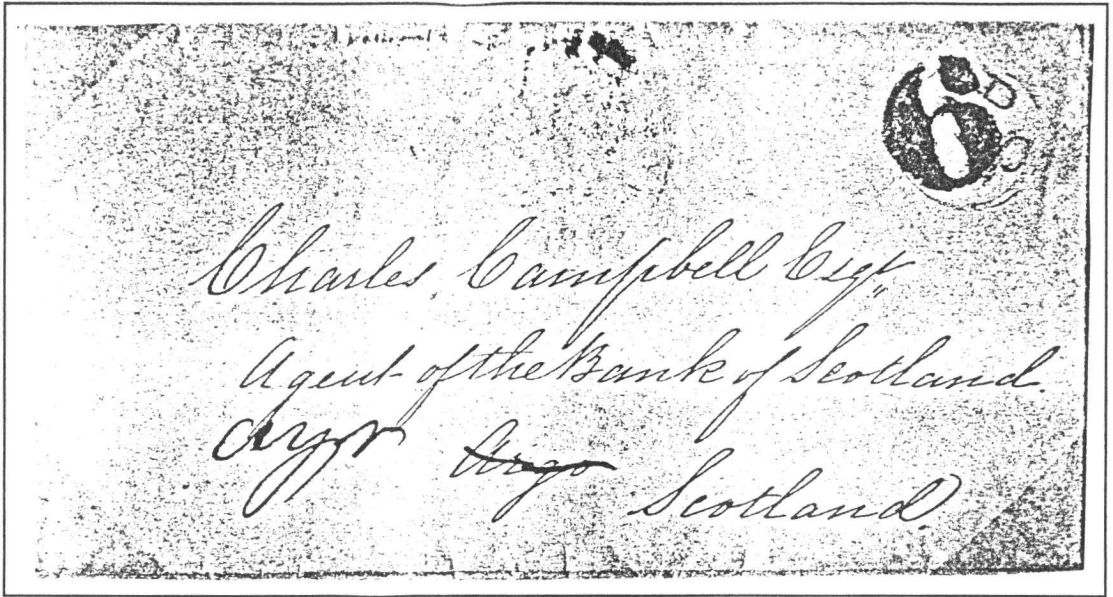 Charles Campbell Esqr
Agent of the Bank of Scotland
Ayr Argo
Scotland